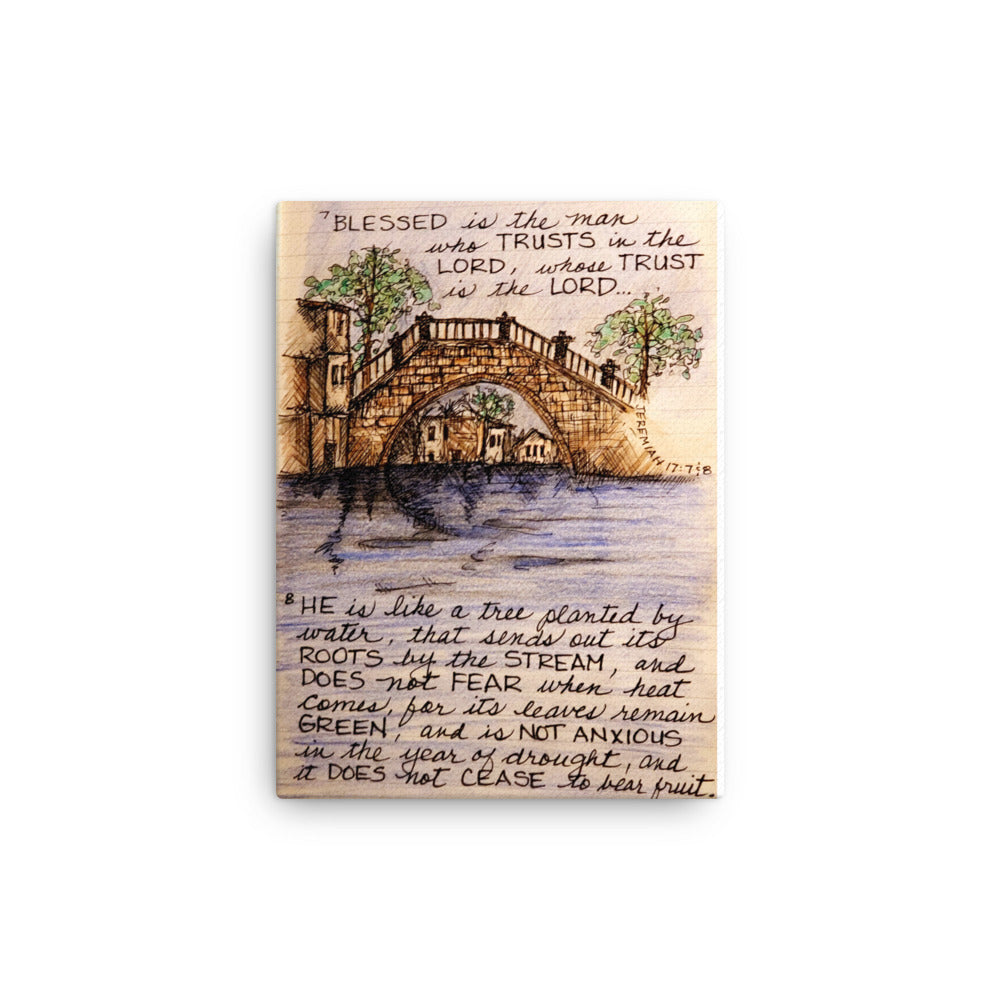 7 BLESSED is the man
who TRUSTS in the
LORD, whose TRUST
is the LORD...
JEREMIAH 17:7&8
8 HE is like a tree planted by
water, that sends out its
ROOTS by the STREAM, and
DOES not FEAR when heat
comes, for its leaves remain
GREEN, and is NOT ANXIOUS
in the year of drought, and
it DOES not CEASE to bear fruit.